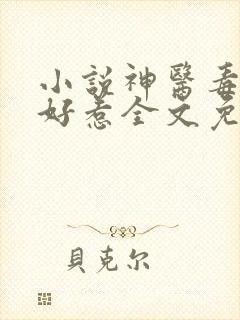 小說神醫毒
好惹全文免
貝克尔